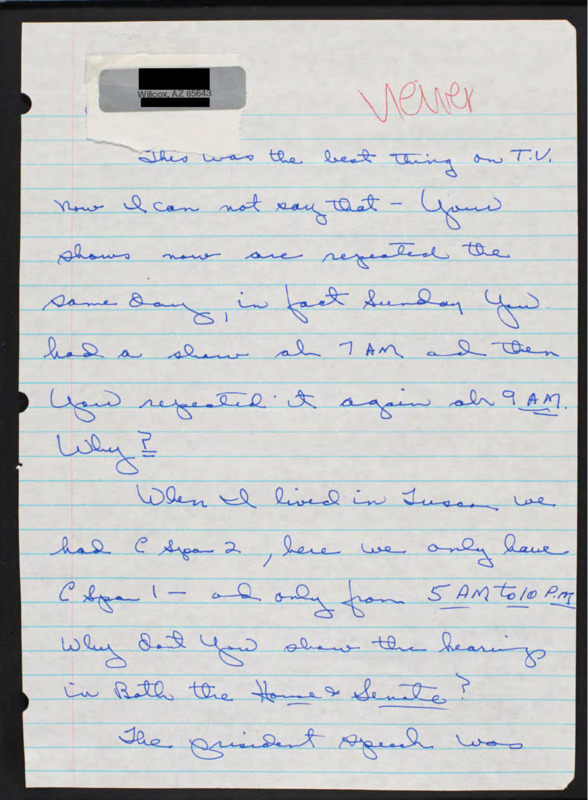 Willcox, AZ 85643
Viewer
This was the best thing on T.V.
now I can not say that - Your
shows now are repeated the
same day, in fact Sunday You
had a show at 7 AM and then
You repeated it again at 9 AM.
Why?
When I lived in Tucson we
had C Span 2, here we only have
C Span 1 - and only from 5 AM to 10 P.M
Why dont You show the hearings
in Both the House & Senate?
The president speech was